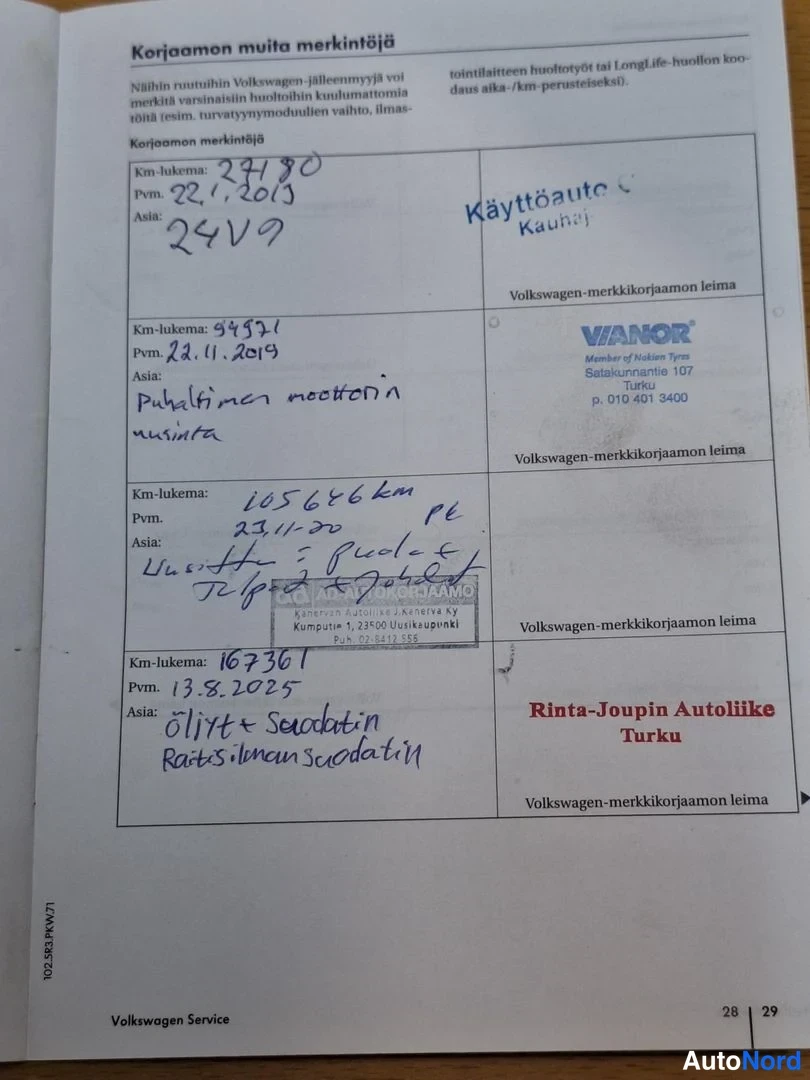 Korjaamon muita merkintöjä
Näihin ruutuihin Volkswagen-jälleenmyyjä voi
merkitä varsinaisiin huoltoihin kuulumattomia
töitä (esim. turvatyynymoduulien vaihto, ilmas-
tointilaitteen huoltotyöt tai LongLife-huollon koo-
daus aika-/km-perusteiseksi).
Korjaamon merkintöjä
Km-lukema: 27180
Pvm. 22.1.2013
Asia:
24V9
Käyttöauto
Kauhaj
Volkswagen-merkkikorjaamon leima
Km-lukema: 94971
Pvm. 22.11.2019
Asia:
Puhaltimen moottorin
uusinta
VIANOR
Member of Nokian Tyres
Satakunnantie 107
Turku
p. 010 401 3400
Volkswagen-merkkikorjaamon leima
Km-lukema: 105646 km
Pvm. 23.11-20
Asia:
AD-AUTOKORJAAMO
Kanervan Autoliike J.Kanerva Ky
Kumputie 1, 23500 Uusikaupunki
Puh. 02-8412 556
Volkswagen-merkkikorjaamon leima
Km-lukema: 167361
Pvm. 13.8.2025
Asia: Öljyt + Suodatin
Raitisilmansuodatin
Rinta-Joupin Autoliike
Turku
Volkswagen-merkkikorjaamon leima
102.5R3.PKW.71
Volkswagen Service
28 29
AutoNord